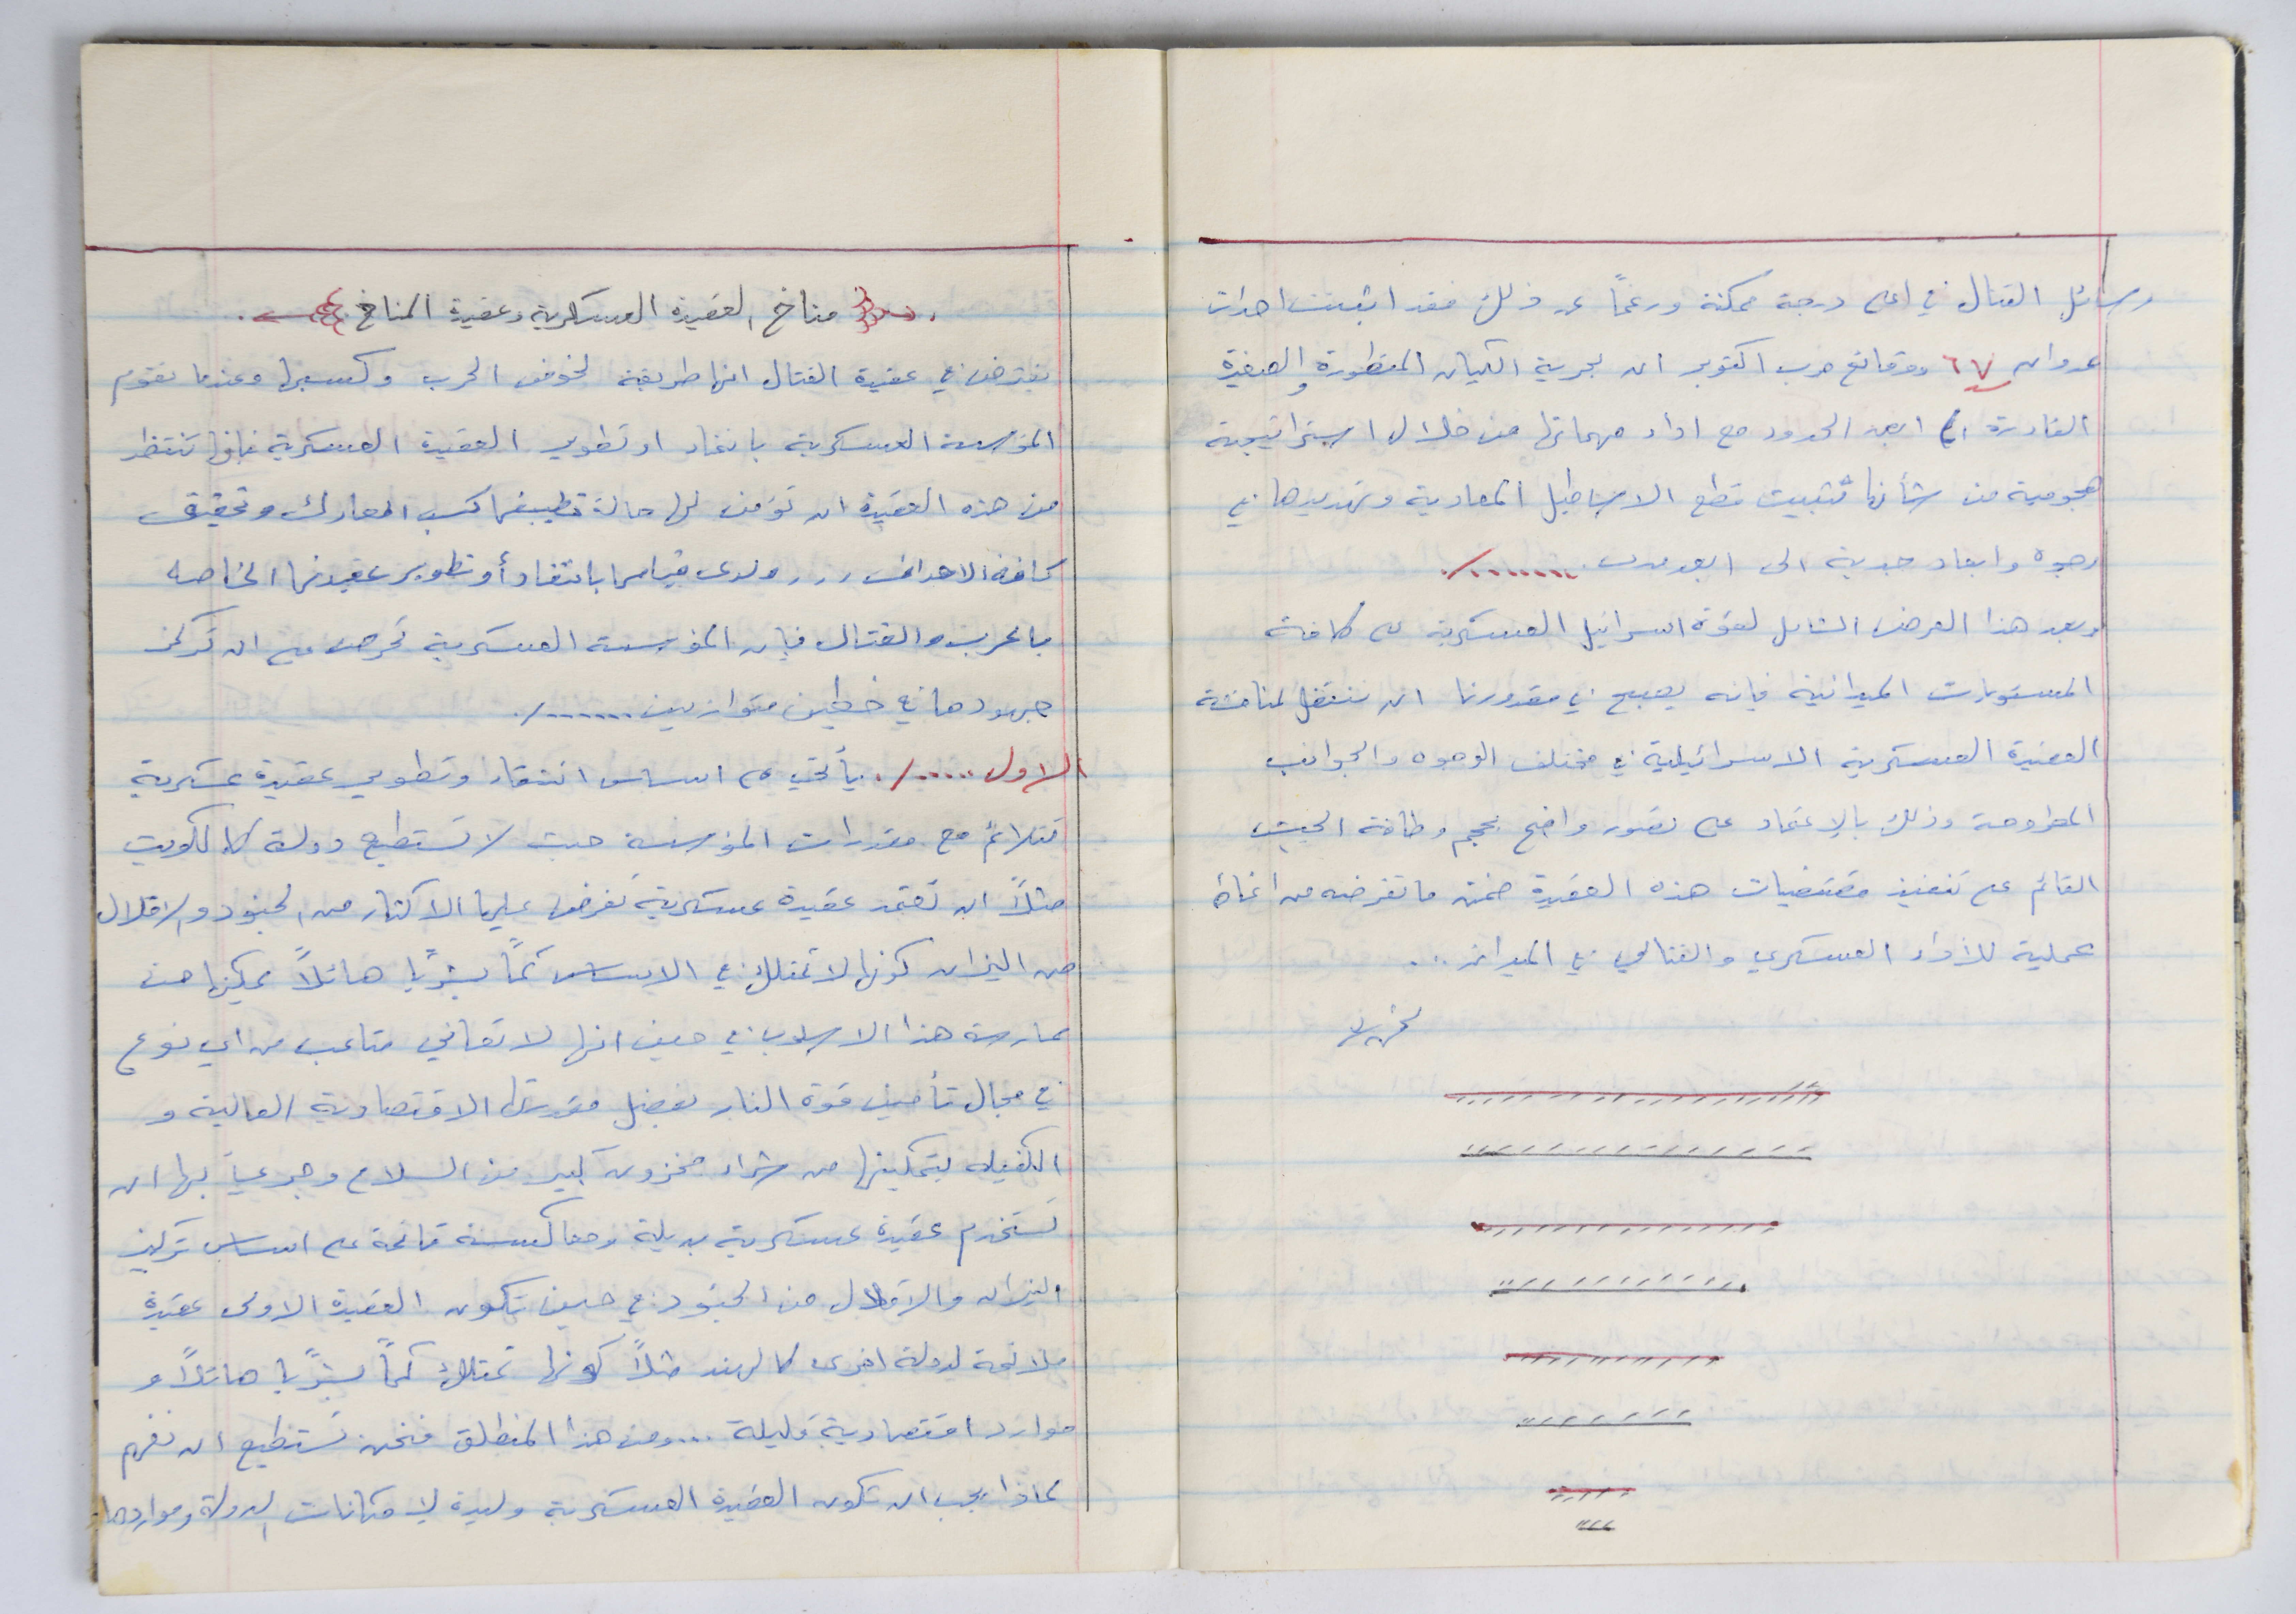 وسائل القتال في اعلى درجة ممكنة ورغماً عن ذلك فقد اثبتت احداث
عدوان ٦٧ ووقائع حرب اكتوبر ان بحرية الكيان المتطورة والصغيرة
القادرة الى ابعد الحدود مع اداء مهماتها من خلال استراتيجية
هجومية من شأنها تثبيت قطع الاساطيل المعادية وتهديدها في
وجوه وابعاد جدية الى ابعد مدى ........./.
وبعد هذا العرض الشامل لقوة اسرائيل العسكرية على كافة
المستويات الميدانية فإنه يصبح في مقدورنا ان ننتقل لمناقشة
العقيدة العسكرية الاسرائيلية في مختلف الوجوه والجوانب
المطروحة وذلك بالإعتماد على تصور واضح بحجم وطاقة الجيش
القائم على تنفيذ مقتضيات هذه العقيدة ضمن ما تفرضه من انماط
عملية للأداء العسكري والقتالي في الميدان ...
مناخ العقيدة العسكرية وعقيدة المناخ
يفترض في عقيدة القتال انها طريقة لخوض الحرب وكسبها وعندما تقوم
المؤسسة العسكرية بانتقاء او تطوير العقيدة العسكرية فإنها تنتظر
من هذه العقيدة ان تؤمن لها حالة تطبيقها كسب المعارك وتحقيق
كافة الاهداف ... ولدى قيامها بانتقاء أو تطوير عقيدتها الخاصه
بالحرب والقتال فإن المؤسسة العسكرية تحرص على ان تركز
جهودها في خطين متوازيين ......./.
الاول ...../. يأتي على اساس انتقاء وتطوير عقيدة عسكرية
تتلائم مع مقدرات المؤسسة حيث لا تستطيع دولة كالكويت
مثلاً ان تعتمد عقيدة عسكرية تفرض عليها الاكثار من الجنود والاقلال
من النيران كونها لا تمتلك في الاساس كماً بشرياً هائلاً يمكنها من
ممارسة هذا الاسلوب في حين انها لا تعاني متاعب من اي نوع
في مجال تأمين قوة النار بفضل مقدرتها الاقتصادية العالية و
الكفيله بتمكينها من شراء مخزون كبير من السلاح وحري بها ان
تستخدم عقيدة عسكرية بديلة ومعاكسة قائمة على اساس تركيز
النيران والاقلال من الجنود في حين تكون العقيدة الاولى عقيدة
ملائمة لدولة اخرى كالهند مثلاً كونها تمتلك كماً بشرياً هائلاً و
موارد اقتصادية قليلة ... ومن هذا المنطلق فنحن نستطيع ان نفهم
لماذا يجب ان تكون العقيدة العسكرية وليدة لإمكانات الدولة ومواردها